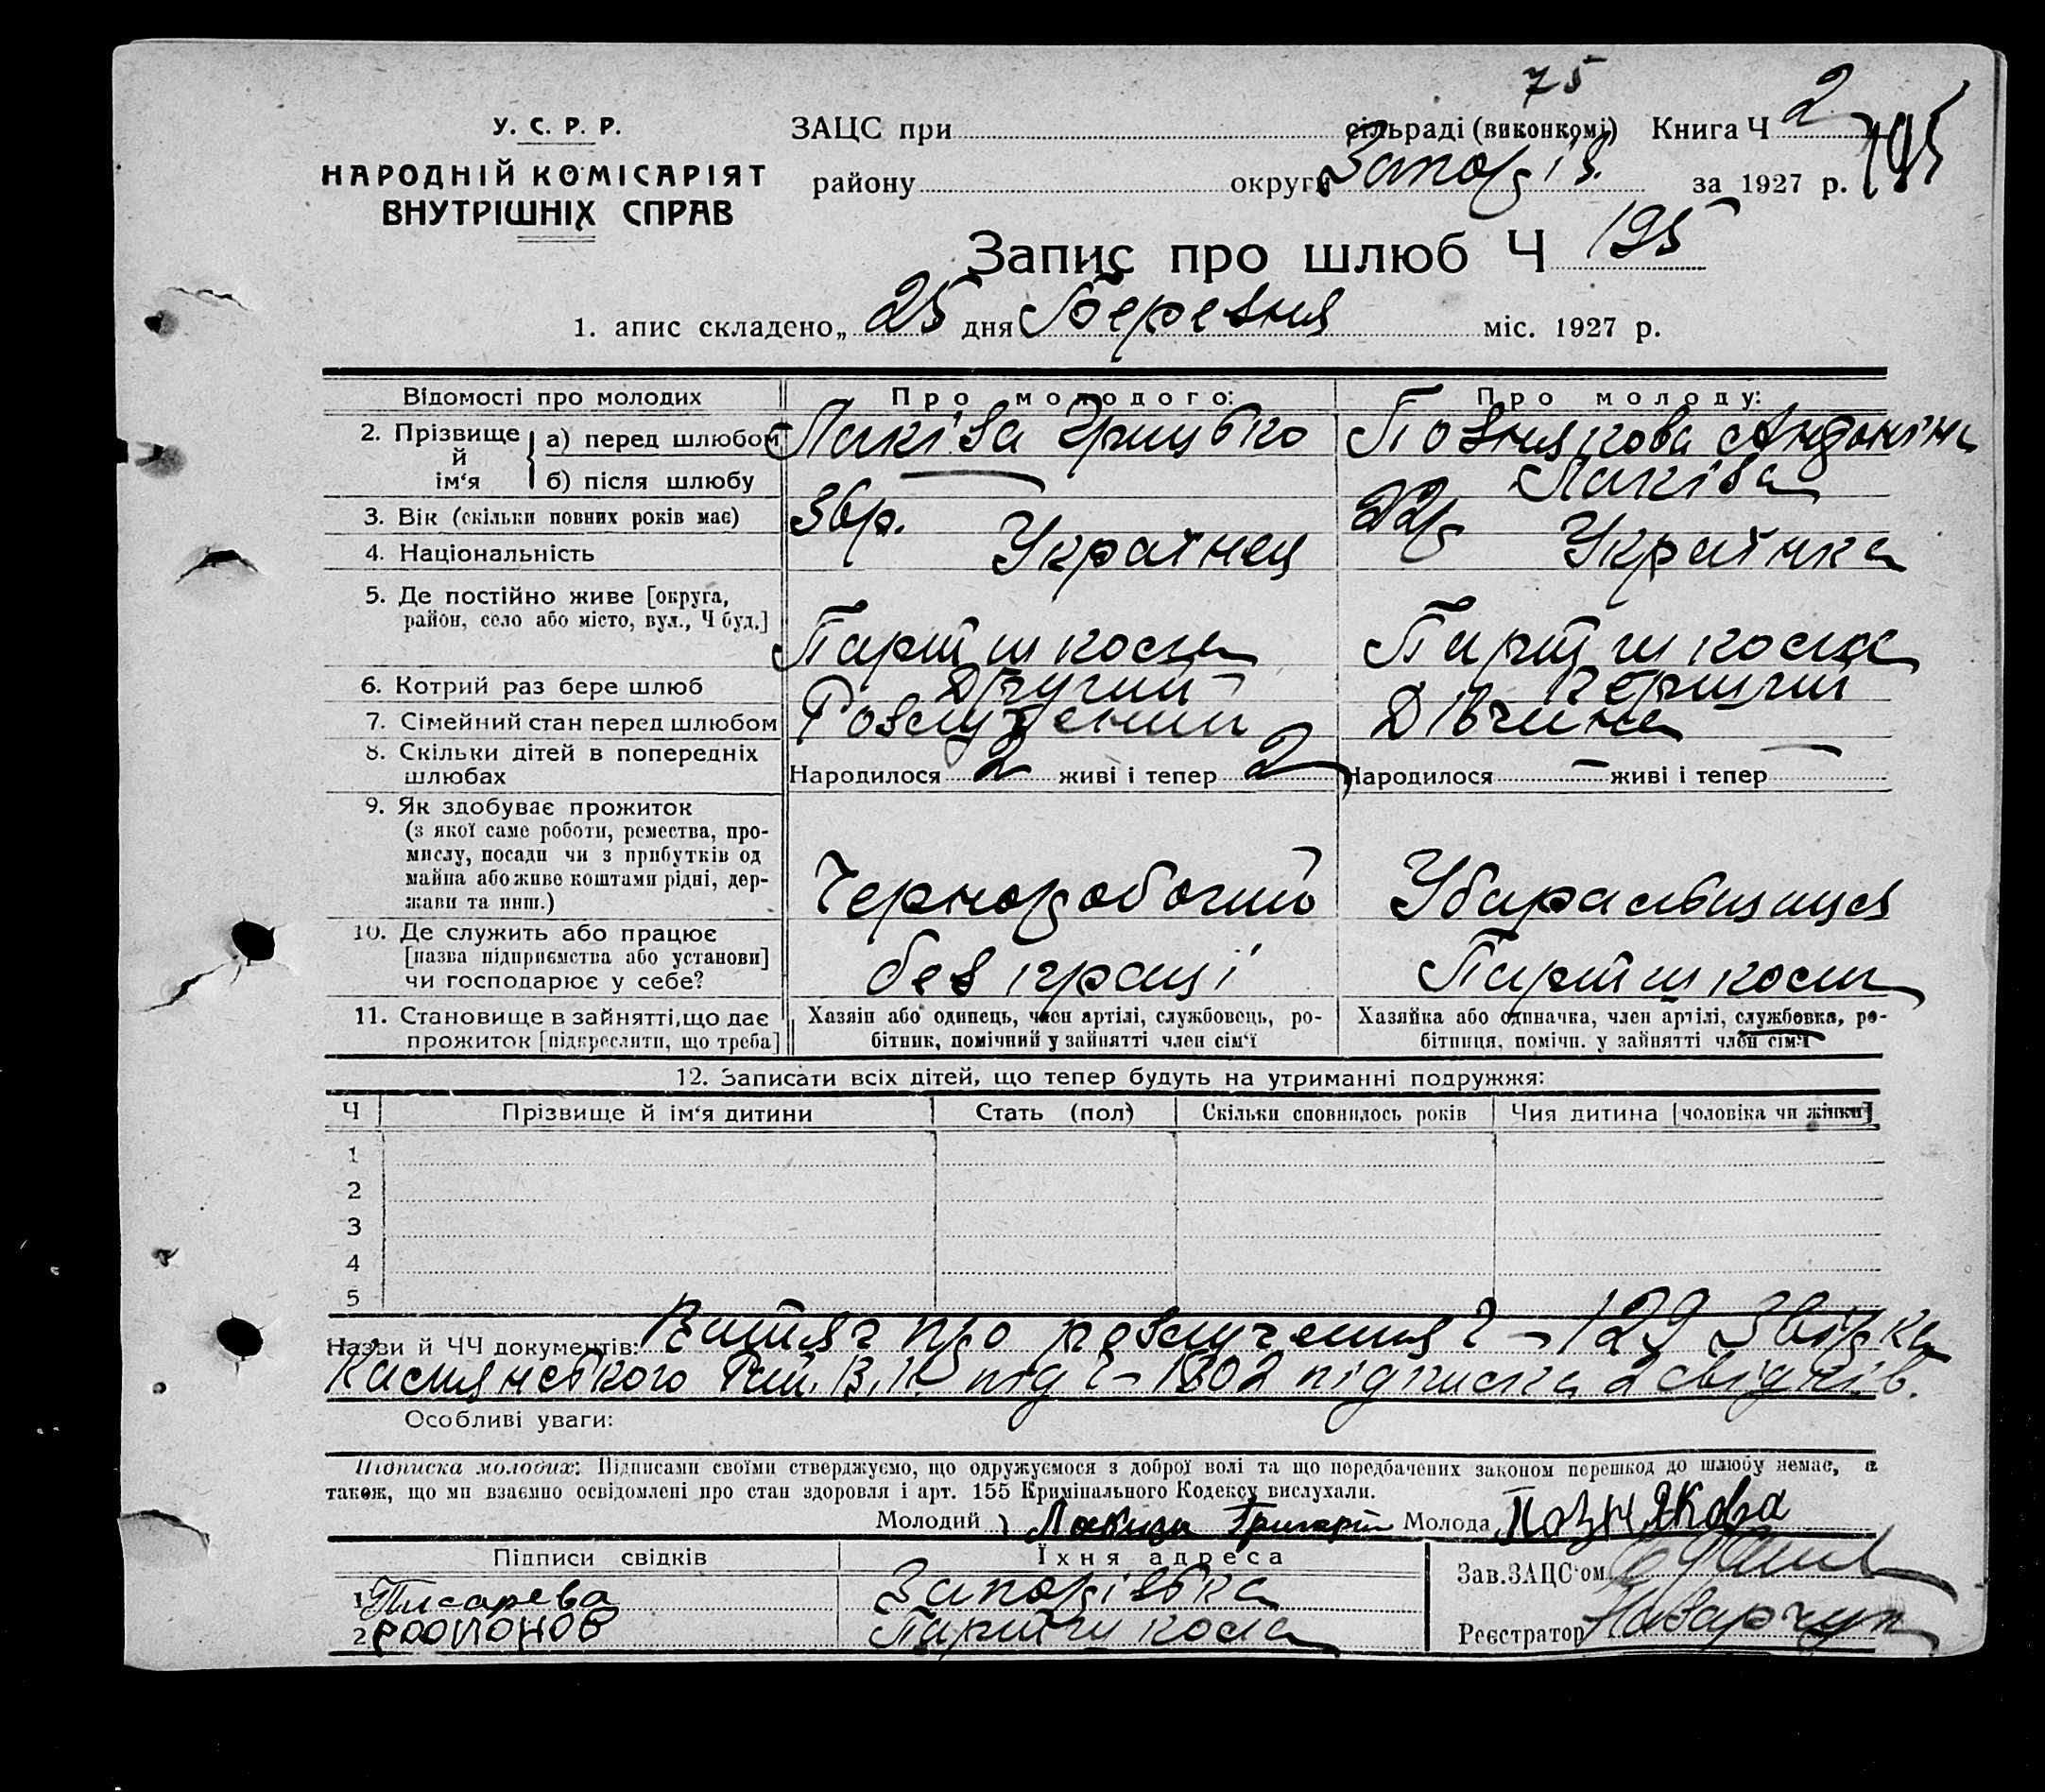 75
У. С. Р. Р.
НАРОДНІЙ КОМІСАРІЯТ
ВНУТРІШНІХ СПРАВ
ЗАЦС при сільраді (виконкомі) Книга Ч 2
району округи Запоріз. за 1927 р. 195
Запис про шлюб Ч 195
1. апис складено „ 25 дня Березня міс. 1927 р.
Відомості про молодих Про молодого: Про молоду:
2. Прізвище й ім‘я а) перед шлюбом Лакіза Грицько Позднякова Антоніна
б) після шлюбу Лакіза
3. Вік (скільки повних років має) 36 р. 22 р
4. Національність Українец Українка
5. Де постійно живе [округа,
район, село або місто, вул., Ч буд.] Партшкола Партшкола
6. Котрий раз бере шлюб Другий Перший
7. Сімейний стан перед шлюбом Розлучений Дівчина
8. Скільки дітей в попередніх
шлюбах Народилося 2 живі і тепер 2 Народилося — живі і тепер —
9. Як здобуває прожиток
(з якої саме роботи, ремества, про-
мислу, посади чи з прибутків од
майна або живе коштами рідні, дер-
жави та инш.) Черноробочий Убиральщиця
10. Де служить або працює
[назва підприємства або установи]
чи господарює у себе? без праці Партшкола
11. Становище в зайнятті, що дає
прожиток [підкреслити, що треба]
Хазяїн або одинець, член артілі, службовець, ро-
бітник, помічний у зайнятті член сім‘ї
Хазяйка або одиначка, член артілі, службовка, ро-
бітниця, помічн. у зайнятті член сім‘ї
12. Записати всіх дітей, що тепер будуть на утриманні подружжя:
Ч Прізвище й ім‘я дитини Стать (пол) Скільки сповнилось років Чия дитина [чоловіка чи жінки]
1
2
3
4
5
Назви й ЧЧ документів: Витяг про розлучення Ч – 129 Звірка
Кам'янського Рай. В. К. під Ч – 1802 підписка 2 свідків.
Особливі уваги:
Підписка молодих: Підписами своїми стверджуємо, що одружуємося з доброї волі та що передбачених законом перешкод до шлюбу немає, а
також, що ми взаємно освідомлені про стан здоровля і арт. 155 Кримінального Кодексу вислухали.
Молодий Лакиза Григорій Молода Позднякова
Підписи свідків Їхня адреса
1 Писарева Запоріжка
2 Партшкола
Зав. ЗАЦС‘ом
Реєстратор Назарчук